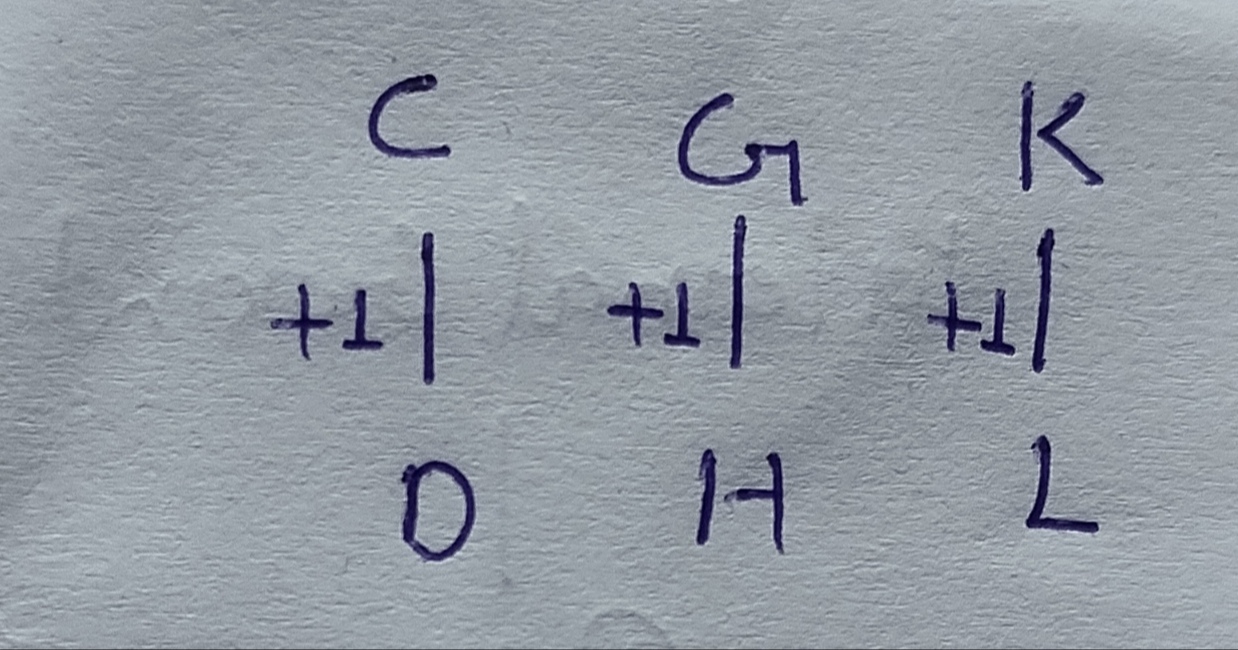 C G K
+1| +1| +1|
D H L